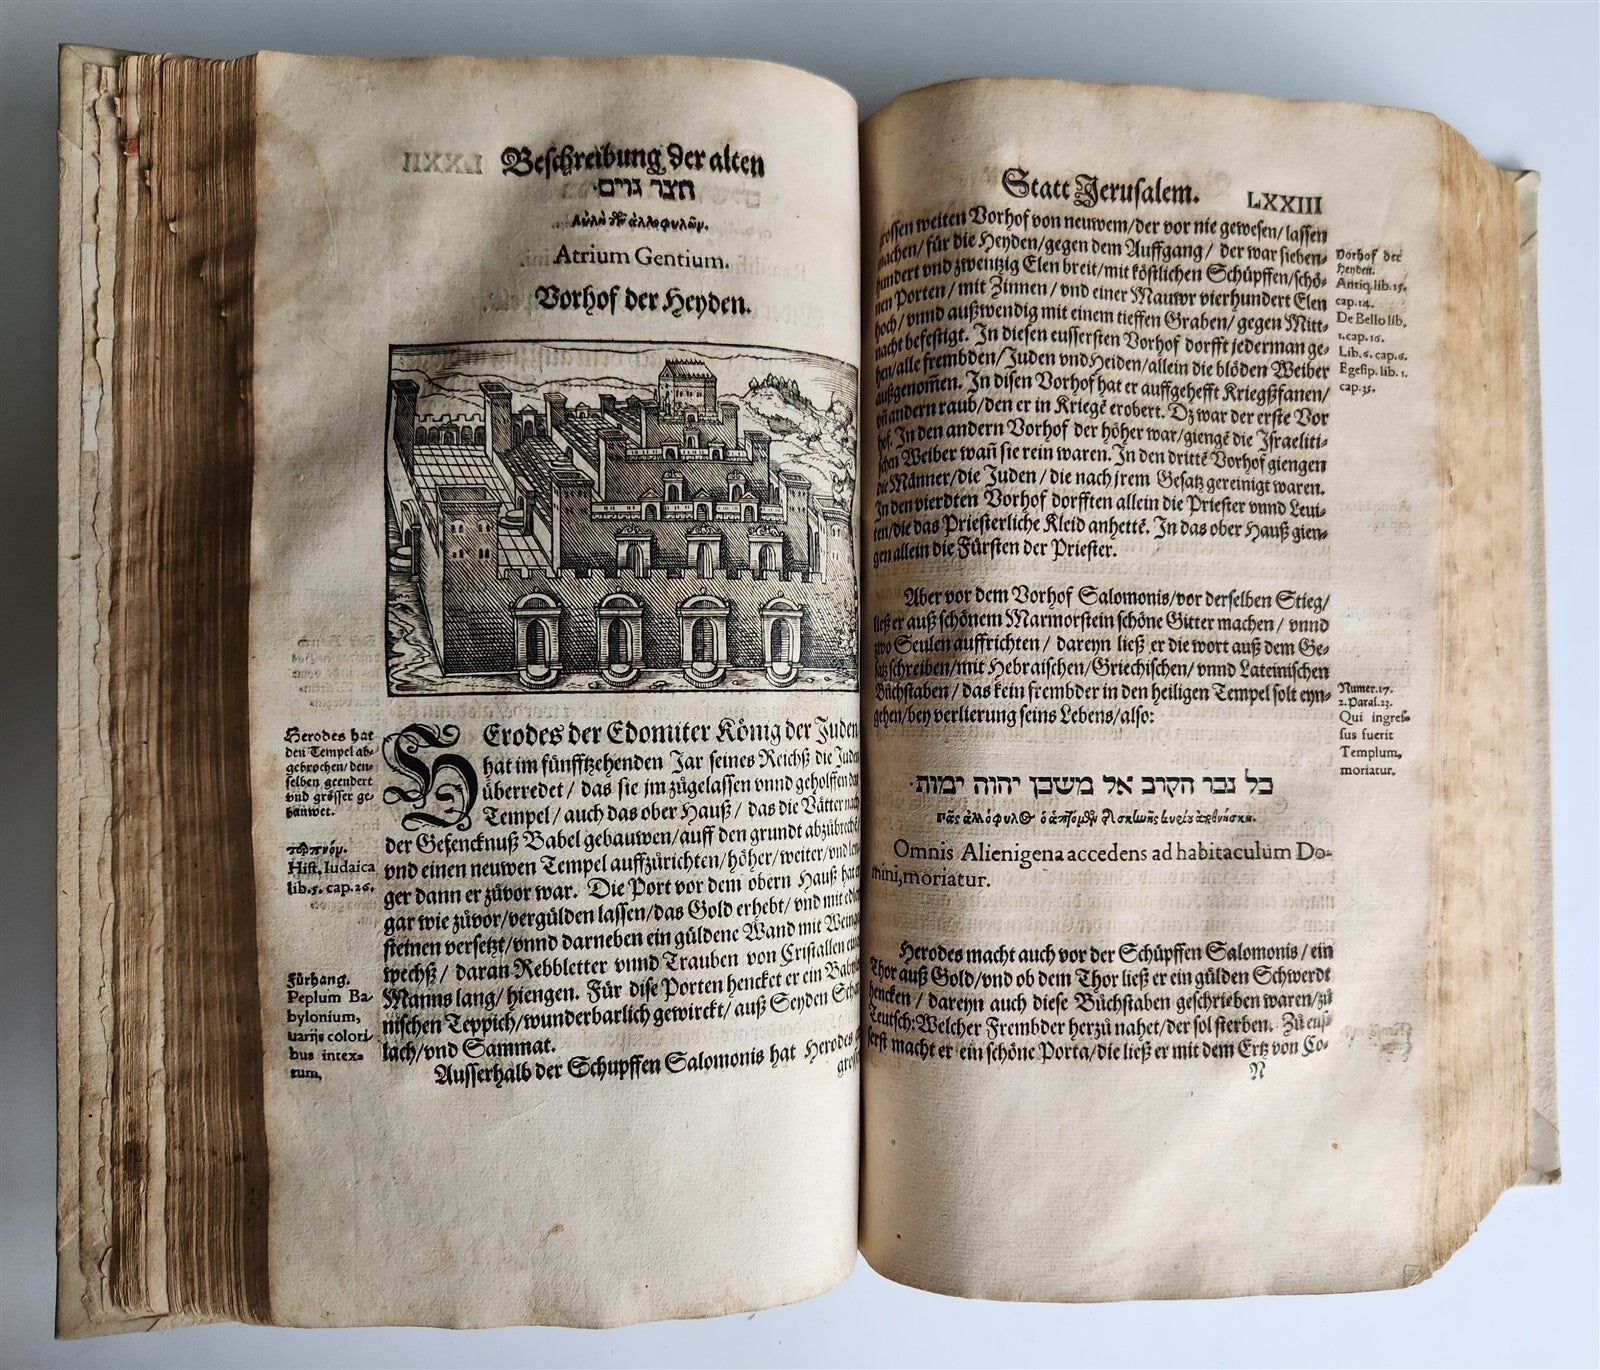 Beschreibung der alten
חצר גוים.
Atrium Gentium.
Vorhof der Heyden.
Herodes hat
den Tempel ab-
gebrochen/ den-
selben geendert
vnd grösser ge-
bauwet.
Hist. Iudaica
lib.5. cap.26.
Fürhang.
Peplum Ba-
bylonium,
uarijs colori-
bus intex-
tum,
HErodes der Edomiter König der Juden
hat im fünfftzehenden Jar seines Reichß die Juden
überredet/ das sie jm zůgelassen vnnd geholffen
Tempel/ auch das ober Hauß/ das die Vätter nach
der Gefencknuß Babel gebauwen/ auff den grundt abzůbreche
vnd einen neuwen Tempel auffzůrichten/ höher/ weiter/ vnd
ger dann er zůvor war. Die Port vor dem obern Hauß hat
gar wie zůvor/ vergülden lassen/ das Gold erhebt/ vnd mit
steinen versetzt/ vnnd darneben ein güldene Wand mit
wechß/ daran Rebbletter vnnd Trauben von Cristallen
Manns lang/ hiengen. Für dise Porten hencket er ein
nischen Teppich/ wunderbarlich gewirckt/ auß Seyden
lach/ vnd Sammat.
Ausserhalb der Schupffen Salomonis hat Herodes
Statt Jerusalem. LXXIII
grossen weiten Vorhof von neuwem/ der vor nie gewesen/ lassen
machen/ für die Heyden/ gegen dem Auffgang/ der war sieben-
hundert vnd zwentzig Elen breit/ mit köstlichen Schüpffen/ schö-
nen Porten/ mit Zinnen/ vnd einer Mauwr vierhundert Elen
hoch/ vnnd außwendig mit einem tieffen Graben/ gegen Mitt-
nacht befestigt. In diesen eussersten Vorhof dorfft jederman ge-
hen/ alle frembden/ Juden vnd Heiden/ allein die blöden Weiber
außgenom̃en. In disen Vorhof hat er auffgehefft Kriegßfanen/
vñ andern raub/ den er in Kriegẽ erobert. Dz war der erste Vor
hof. In den andern Vorhof der höher war/ giengẽ die Israeliti-
schen Weiber wañ sie rein waren. In den drittẽ Vorhof giengen
die Männer/ die Juden/ die nach jrem Gesatz gereinigt waren.
In den vierdten Vorhof dorfften allein die Priester vnnd Leui-
ten/ die das Priesterliche Kleid anhettẽ. In das ober Hauß gien-
gen allein die Fürsten der Priester.
Vorhof der
Heyden.
Antiq. lib.15.
cap.14.
De Bello lib.
1. cap.16.
Lib.6. cap.6.
Egesip. lib.1.
cap.35.
Aber vor dem Vorhof Salomonis/ vor derselben Stieg/
ließ er auß schönem Marmorstein schöne Gitter machen/ vnnd
zwo Seulen auffrichten/ dareyn ließ er die wort auß dem Ge-
satz schreiben/ mit Hebraischen/ Griechischen/ vnnd Lateinischen
Büchstaben/ das kein frembder in den heiligen Tempel solt eyn-
gehen/ bey verlierung seins Lebens/ also:
Numer.17.
2. Paral.23.
Qui ingres-
sus fuerit
Templum,
moriatur.
כל גבר הקרב אל משכן יהוה ימות.
Omnis Alienigena accedens ad habitaculum Do-
mini, moriatur.
Herodes macht auch vor der Schüpffen Salomonis/ ein
Thor auß Gold/ vnd ob dem Thor ließ er ein gülden Schwerdt
hencken/ dareyn auch diese Büchstaben geschrieben waren/ zů
Teutsch: Welcher Frembder herzů nahet/ der sol sterben. Zů eus-
serst macht er ein schöne Porta/ die ließ er mit dem Ertz von Co-
N